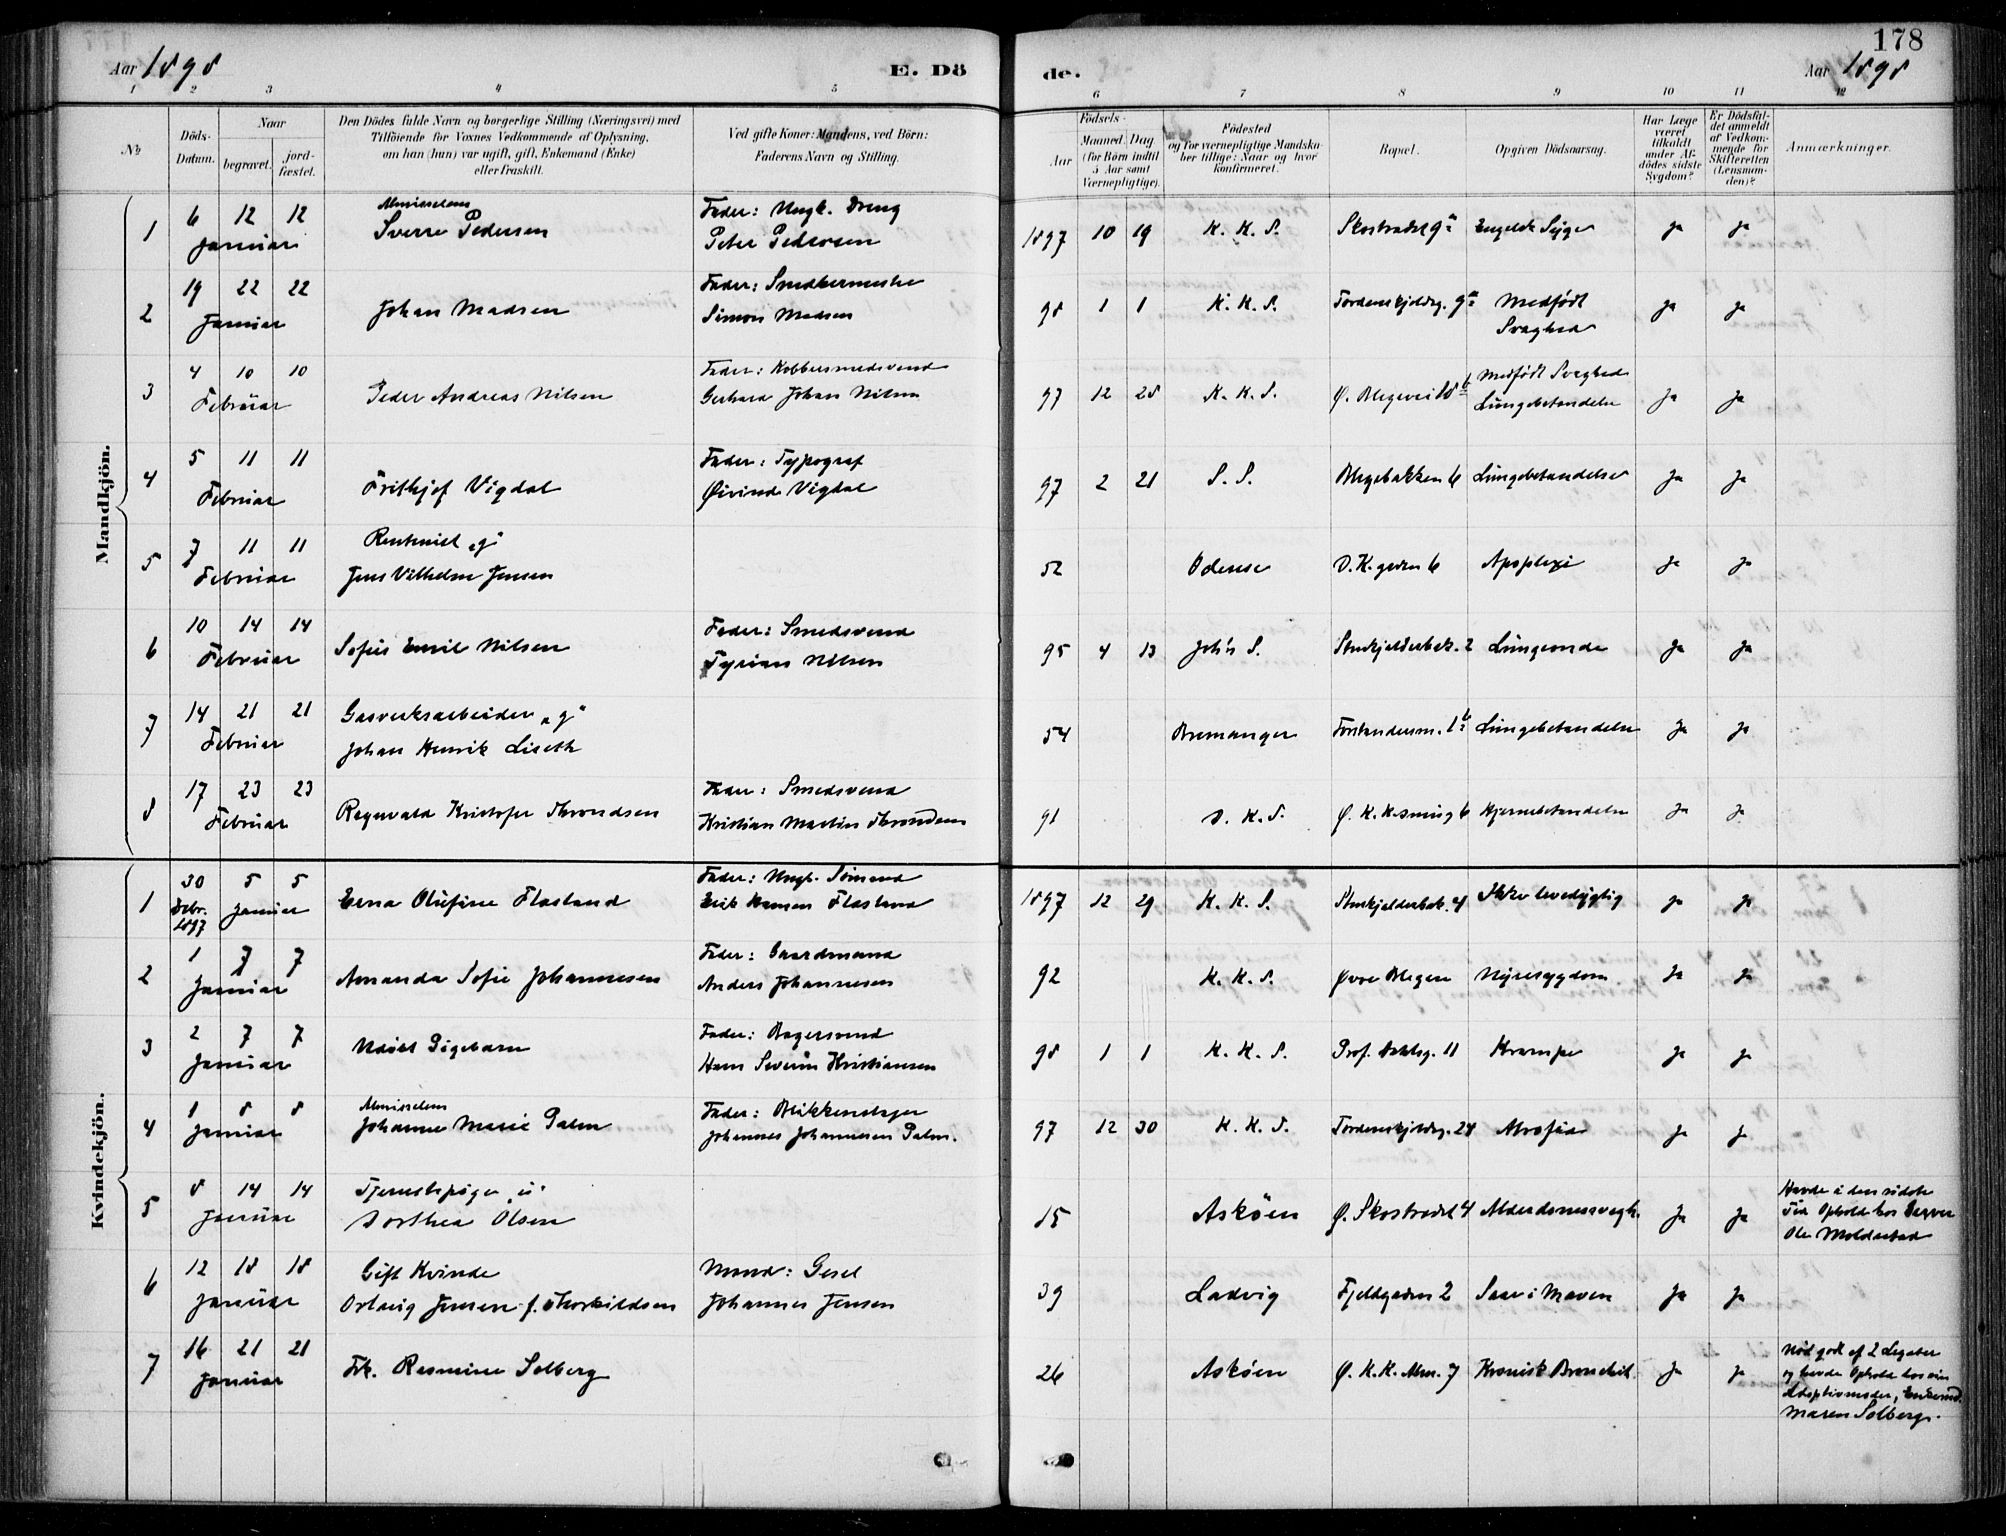 Aar 1898
E. Dö
de.
178
Aar 1898
1 2 3 4 5
6 7 8 9 10 11 12
№
Döds-
Datum.
Naar
begravet.
jord-
fæstet.
Den Dödes fulde Navn og borgerlige Stilling (Næringsvei) med
Tilföiende for Voxnes Vedkommende af Oplysning,
om han (hun) var ugift, gift, Enkemand (Enke)
eller fraskilt.
Ved gifte Koner: Mandens, ved Börn:
Faderens Navn og Stilling.
Födsels-
Aar
Maaned. Dag
(for Börn indtil
5 Aar samt
Værnepligtige).
Födested
og for værnepligtige Mandska-
ber tillige: Naar og hvor
konfirmeret.
Bopæl.
Opgiven Dödsaarsag.
Har Læge
været
tilkaldt
under Af-
dödes sidste
Sygdom?
Er Dödsfal-
det anmeldt
af Vedkom-
mende for
Skifteretten
(Lensman-
den)?
Anmærkninger.
Mandkjön.
1 6 12 12 Januar Sverre Pedersen Fader: Ungk. Dreng Peter Pedersen 1897 10 19 K. K. S. Skostrædet 9a Engelsk Syge ja ja
2 19 22 22 Januar Johan Madsen Fader: Smedkermester Simon Madsen 98 1 1 K. K. S. Tordenskjoldsg. 9a Medfödt Svaghed ja ja
3 4 10 10 Februar Peder Andreas Nilsen Fader: Kobbersmedsvend Gerhard Johan Nilsen 97 12 28 K. K. S. Ø. Blegevei 18b Medfödt Svaghed Lungebetændelse ja ja
4 5 11 11 Februar Frithjof Vigdal Fader: Typograf Øivind Vigdal 97 2 21 S. S. Blegebakken 6 Lungebetændelse ja ja
5 7 11 11 Februar Rentenist "g" Jens Vilhelm Jensen 52 Odense D. K. gaden 6 Apoplexi ja ja
6 10 14 14 Februar Sofus Emil Nilsen Fader: Smedsvend Tyrian Nilsen 95 4 13 Joh's S. Stenkjelderbak. 2 Lungeonde ja ja
7 14 21 21 Februar Gasverksarbeider "g" Johan Henrik Liseth 54 Bremanger Forstandersm. 1b Lungebetændelse ja ja
8 17 23 23 Februar Ragnvald Kristofer Throndsen Fader: Smedsvend Kristian Martin Throndsen 91 D. K. S. Ø. K. K. smug 6 Hjernebetændelse ja ja
Kvindekjön.
1 30 Debr. 1897 5 5 Januar Erna Olufine Flasland Fader: Ungk. Sömand Erik Hansen Flasland 1897 12 29 K. K. S. Stenkjelderbak. 4 Ikke levedygtig ja ja
2 1 7 7 Januar Amanda Sofie Johannesen Fader: Gaardmand Anders Johannesen 92 K. K. S. Øvre Blegen Nyresygdom ja ja
3 2 7 7 Januar Udöbt Pigebarn Fader: Bagersvend Hans Severin Kristiansen 98 1 1 K. K. S. Prof. Dahlsg. 11 Krampe ja ja
4 1 8 8 Januar Johanne Marie Palm Fader: Blikkenslager Johannes Johannesen Palm. 97 12 30 K. K. S. Tordenskjoldsg. 24 Atrofia ja ja
5 8 14 14 Januar Tjenestepige "u" Dorthea Olsen 15 Asköen Ø. Skostrædet 4 Alderdomssvagh. ja ja Havde i den sidste Tid Ophold hos Ole Moldestad
6 12 18 18 Januar Gift Kvinde Jensen f. Thorkildsen Mand: Gesel Johannes Jensen 39 Ladvig Fjeldgaden 2 Saar i Maven ja ja
7 16 21 21 Januar Frk. Rasmine Solberg 26 Asköen Ø. K. K. Alm. 7 Kronisk Bronchit. ja ja Nöd godt af 2 Legater og havde Ophold hos sin Adoptivmoder, Maren Solberg.